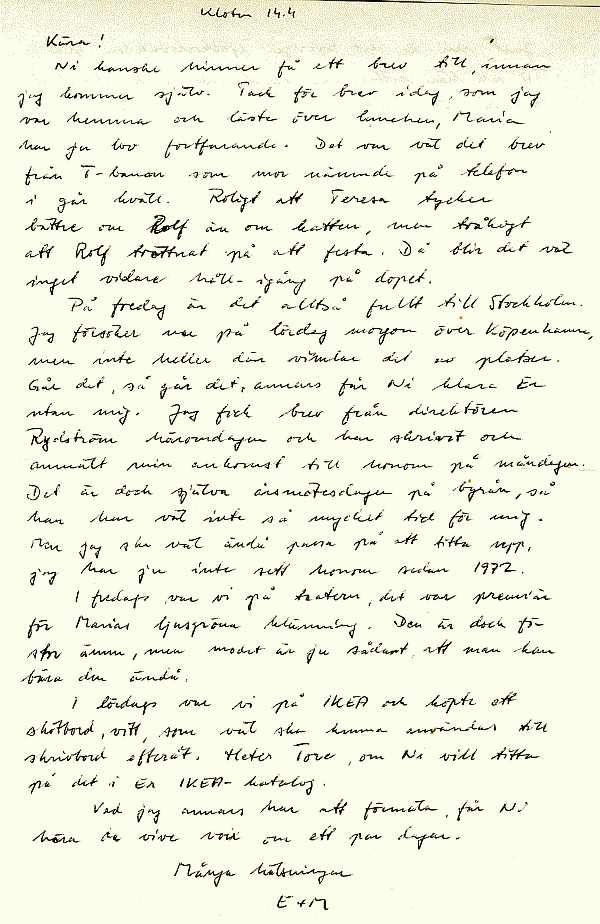 Kloten 14.4
Kära!
Ni kanske hinner få ett brev till, innan
jag kommer själv. Tack för brev idag, som jag
var hemma och läste över lunchen, Maria
har ju lov fortfarande. Det var väl det brev
från T-banan som mor nämnde på telefon
i går kväll. Roligt att Teresa tycker
bättre om Rolf än om katten, men tråkigt
att Rolf tröttnat på att festa. Då blir det väl
inget vidare håll-igång på dopet.
På fredag är det alltså fullt till Stockholm.
Jag försöker nu på lördag morgon över Köpenhamn,
men inte heller där vimlar det av platser.
Går det, så går det, annars får Ni klara Er
utan mig. Jag fick brev från direktören
Rydström häromdagen och har skrivit och
anmält min ankomst till honom på måndagen.
Det är dock själva årsmötesdagen på byrån, så
han har väl inte så mycket tid för mig.
Men jag ska väl ändå passa på att titta upp,
jag har ju inte sett honom sedan 1972.
I fredags var vi på teatern, det var premiär
för Marias ljusgröna klänning. Den är dock för
stor ännu, men modet är ju sådant, att man kan
bära den ändå.
I lördags var vi på IKEA och köpte ett
skötbord, vitt, som väl ska kunna användas till
skrivbord efteråt. Heter Tore, om Ni vill titta
på det i Er IKEA-katalog.
Vad jag annars har att förmäla, får Ni
höra de vive voix om ett par dagar.
Många hälsningar
E + M